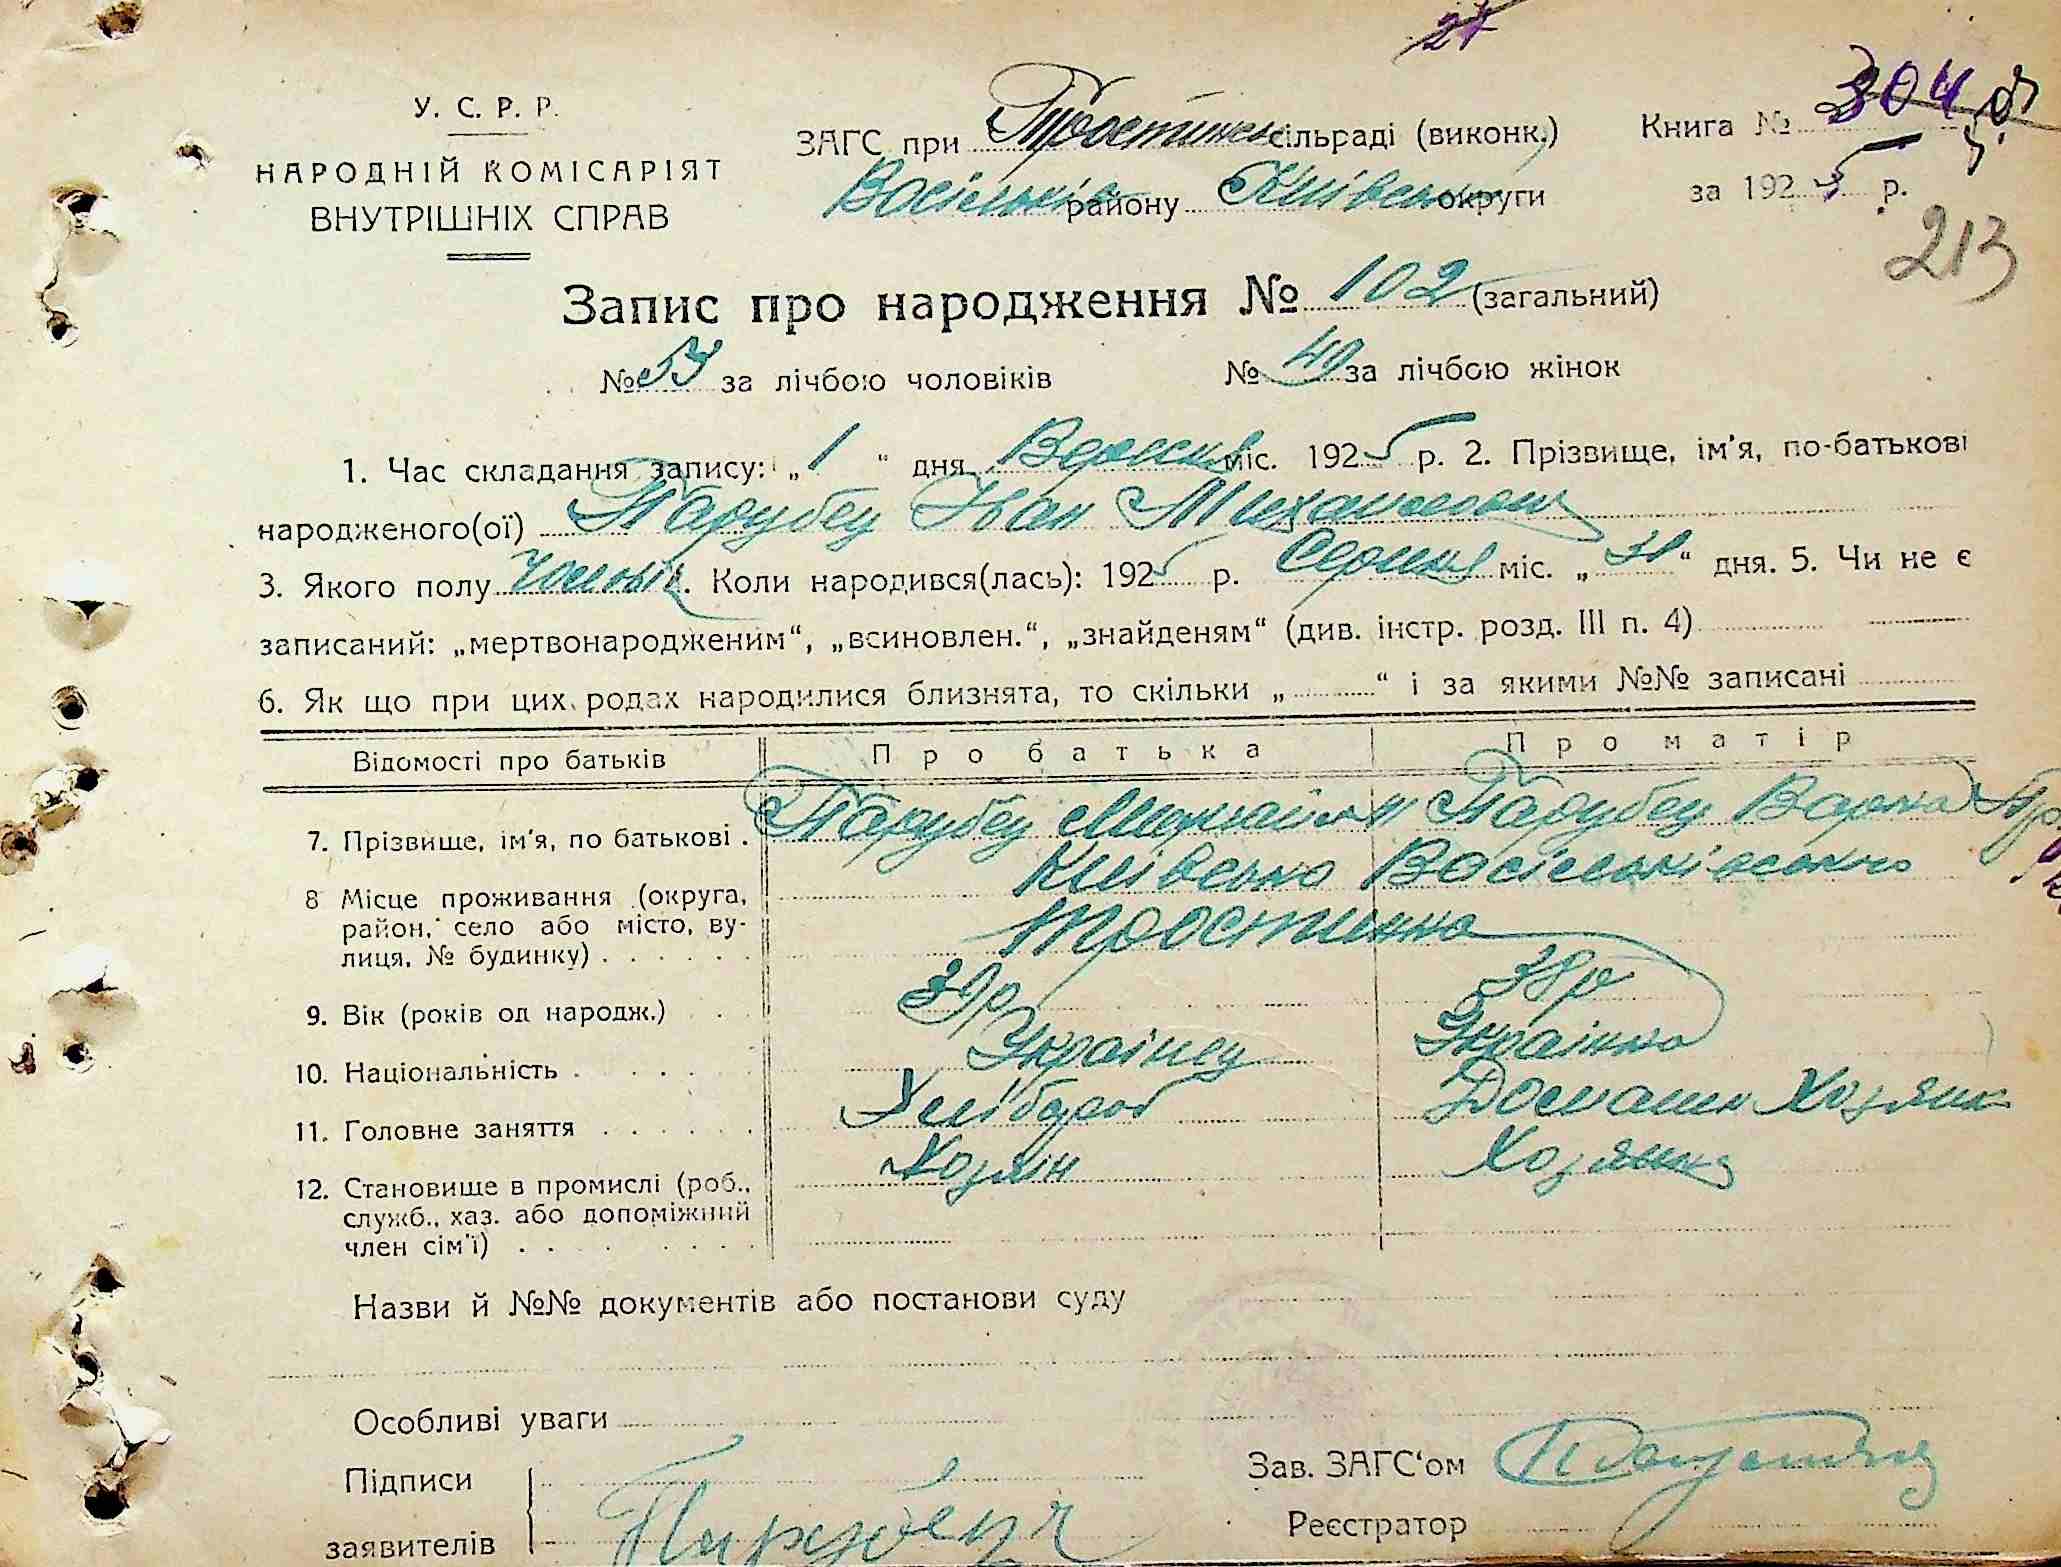 27
У. С. Р. Р.
НАРОДНІЙ КОМІСАРІЯТ
ВНУТРІШНІХ СПРАВ
ЗАГС при Тростинск сільраді (виконк.)
Васільків району Київськ округи
Книга № 304
за 1925 р.
213
Запис про народження № 102 (загальний)
№ 53 за лічбою чоловіків № 49 за лічбою жінок
1. Час складання запису: „ 1 “ дня Вересня міс. 1925 р. 2. Прізвище, ім'я, по-батькові
народженого(ої) Парубец Іван Михайлович
3. Якого полу Чолов 4. Коли народився(лась): 1925 р. Серпня міс. „ 31 “ дня. 5. Чи не є
записаний: „мертвонародженим“, „всиновлен.“, „знайденям“ (див. інстр. розд. III п. 4)
6. Як що при цих родах народилися близнята, то скільки „ “ і за якими №№ записані
Відомості про батьків Про батька Про матір
7. Прізвище, ім'я, по батькові . Парубец Михайло Парубец Варка
8 Місце проживання (округа, Київсько Васільківського
район, село або місто, ву- Тростинка
лиця, № будинку) . . . . . .
9. Вік (років од народж.) . . 39р 38р
10. Національність . . . . . Українец Українка
11. Головне заняття . . . . . . Хлібороб Домашн Хозяйк
12. Становище в промислі (роб., Хозяін Хозяйка
служб., хаз. або допоміжний
член сім'ї) . . . . . . . .
Назви й №№ документів або постанови суду
Особливі уваги
Підписи
Зав. ЗАГС‘ом
заявителів Парубець
Реєстратор